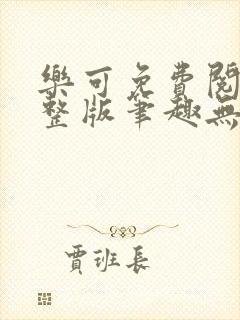 樂可免費閱
整版筆趣無
賈班長